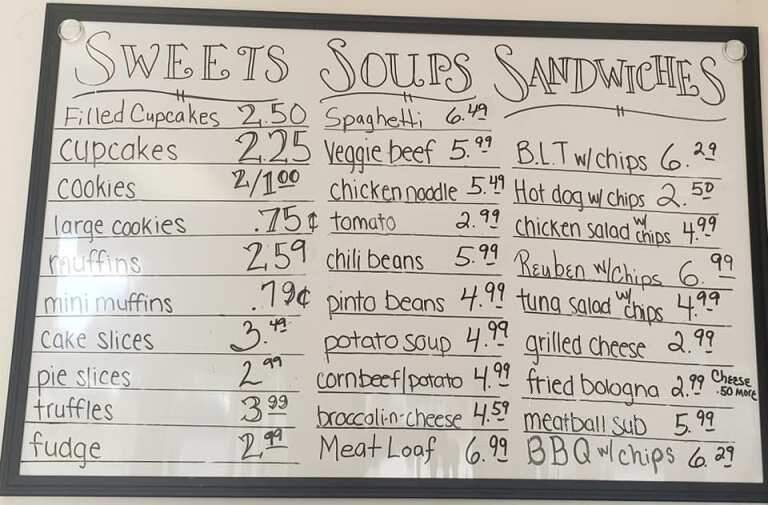 SWEETS
Filled Cupcakes 2.50
cupcakes 2.25
cookies 2/1.00
large cookies .75¢
muffins 2.59
mini muffins .79¢
cake slices 3.49
pie slices 2.99
truffles 3.99
fudge 2.99
SOUPS
Spaghetti 6.49
Veggie beef 5.99
chicken noodle 5.49
tomato 2.99
chili beans 5.99
pinto beans 4.99
potato soup 4.99
cornbeef/potato 4.99
broccoli-n-cheese 4.59
Meat Loaf 6.99
SANDWICHES
B.L.T w/chips 6.29
Hot dog w/ chips 2.50
chicken salad w/ chips 4.99
Reuben w/chips 6.99
tuna salad w/ chips 4.99
grilled cheese 2.99
fried bologna 2.99 Cheese .50 more
meatball sub 5.99
BBQ w/chips 6.29